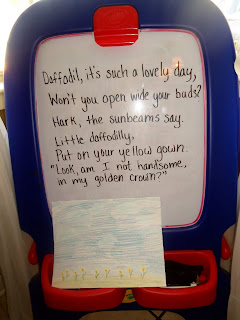 Daffodil, it's such a lovely day,
Won't you open wide your buds?
Hark, the sunbeams say.
Little daffodilly,
Put on your yellow gown.
"Look, am I not handsome,
in my golden crown?"